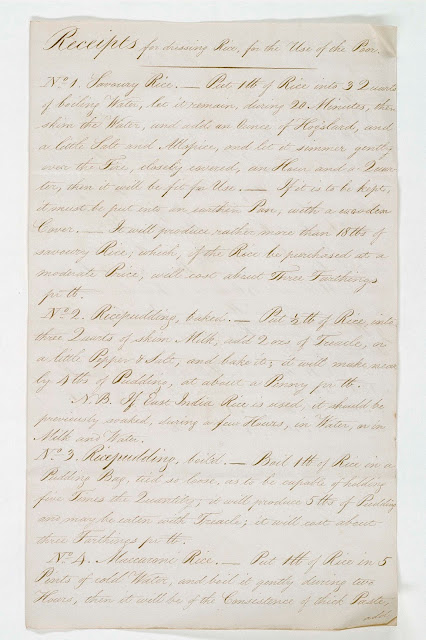 Receipts for dressing Rice, for the Use of the Poor.
No. 1. Savoury Rice. — Put 1 lb of Rice into 3 Quarts
of boiling Water, let it remain, during 20 Minutes; then
skim the Water, and add an Ounce of Hogslard, and
a little Salt and Allspice, and let it simmer gently
over the Fire, closely covered, an Hour and a Quar-
ter, then it will be fit for Use. — If it is to be kept,
it must be put into an earthen Pan, with a wooden
Cover. — It will produce rather more than 18 lbs of
savoury Rice; which, if the Rice be purchased at a
moderate Price, will cost about Three Farthings
per lb.
No. 2. Ricepudding, baked. — Put ½ lb of Rice, into
three Quarts of skim Milk, add 2 ozs of Treacle, or
a little Pepper & Salt, and bake it; it will make near-
ly 4 lbs of Pudding, at about a Penny per lb.
N.B. If East India Rice is used, it should be
previously soaked, during a few Hours, in Water, or in
Milk and Water.
No. 3. Ricepudding, boil'd. — Boil 1 lb of Rice in a
Pudding Bag, tied so loose, as to be capable of holding
five Times the Quantity; it will produce 5 lbs of Pudding
and may be eaten with Treacle; it will cost about
three Farthings per lb.
No. 4. Maccaroni Rice. — Put 1 lb of Rice in 5
Pints of cold Water, and boil it gently during two
Hours, then it will be of the Consistence of thick Paste,
add